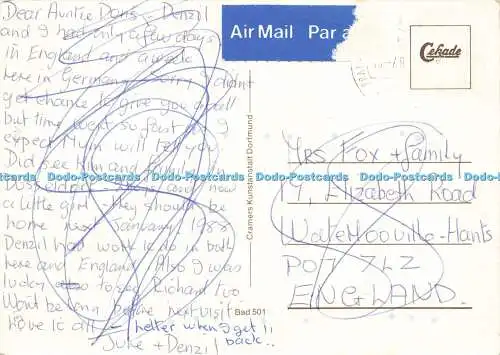 Dear Auntie Doris - Denzil
and I had only a few days
in England and a week
here in Germany. Sorry I didn't
get chance to give you a call
but time went so fast as I
expect Mum will tell you.
Did see Kim and
a little girl - they should be
home next January 1988
Denzil had work to do in both
here and England. Also I was
lucky to see Richard too
Won't be long before next visit
Love to all - (letter when I get !!
back..
Julie + Denzil
Air Mail Par a
Cekade
Cramers Kunstanstalt Dortmund
Bad 501
Mrs Fox + family
17, Elizabeth Road
Waterlooville - Hants
PO7 7LZ
ENGLAND.
Dodo-Postcards Dodo-Postcards Dodo-Postcards Dodo-Postcards Dodo-Postcards